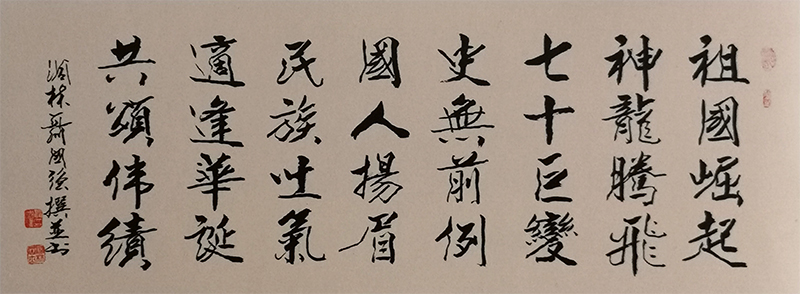 祖國崛起
神龍騰飛
七十巨變
史無前例
國人揚眉
民族吐氣
適逢華誕
共頌伟績
林聶國强撰並书